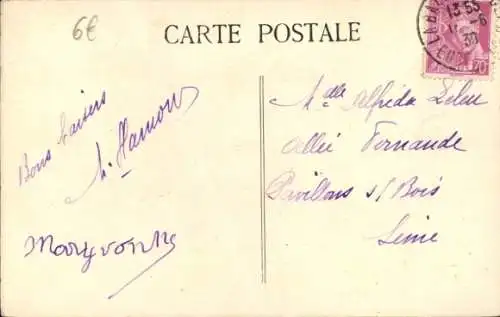 6€
CARTE POSTALE
13 55
Bons baisers
M. Hamon
Maryvonne
Melle Alfréda Leleu
Allée Fernande
Pavillons s/ Bois
Seine